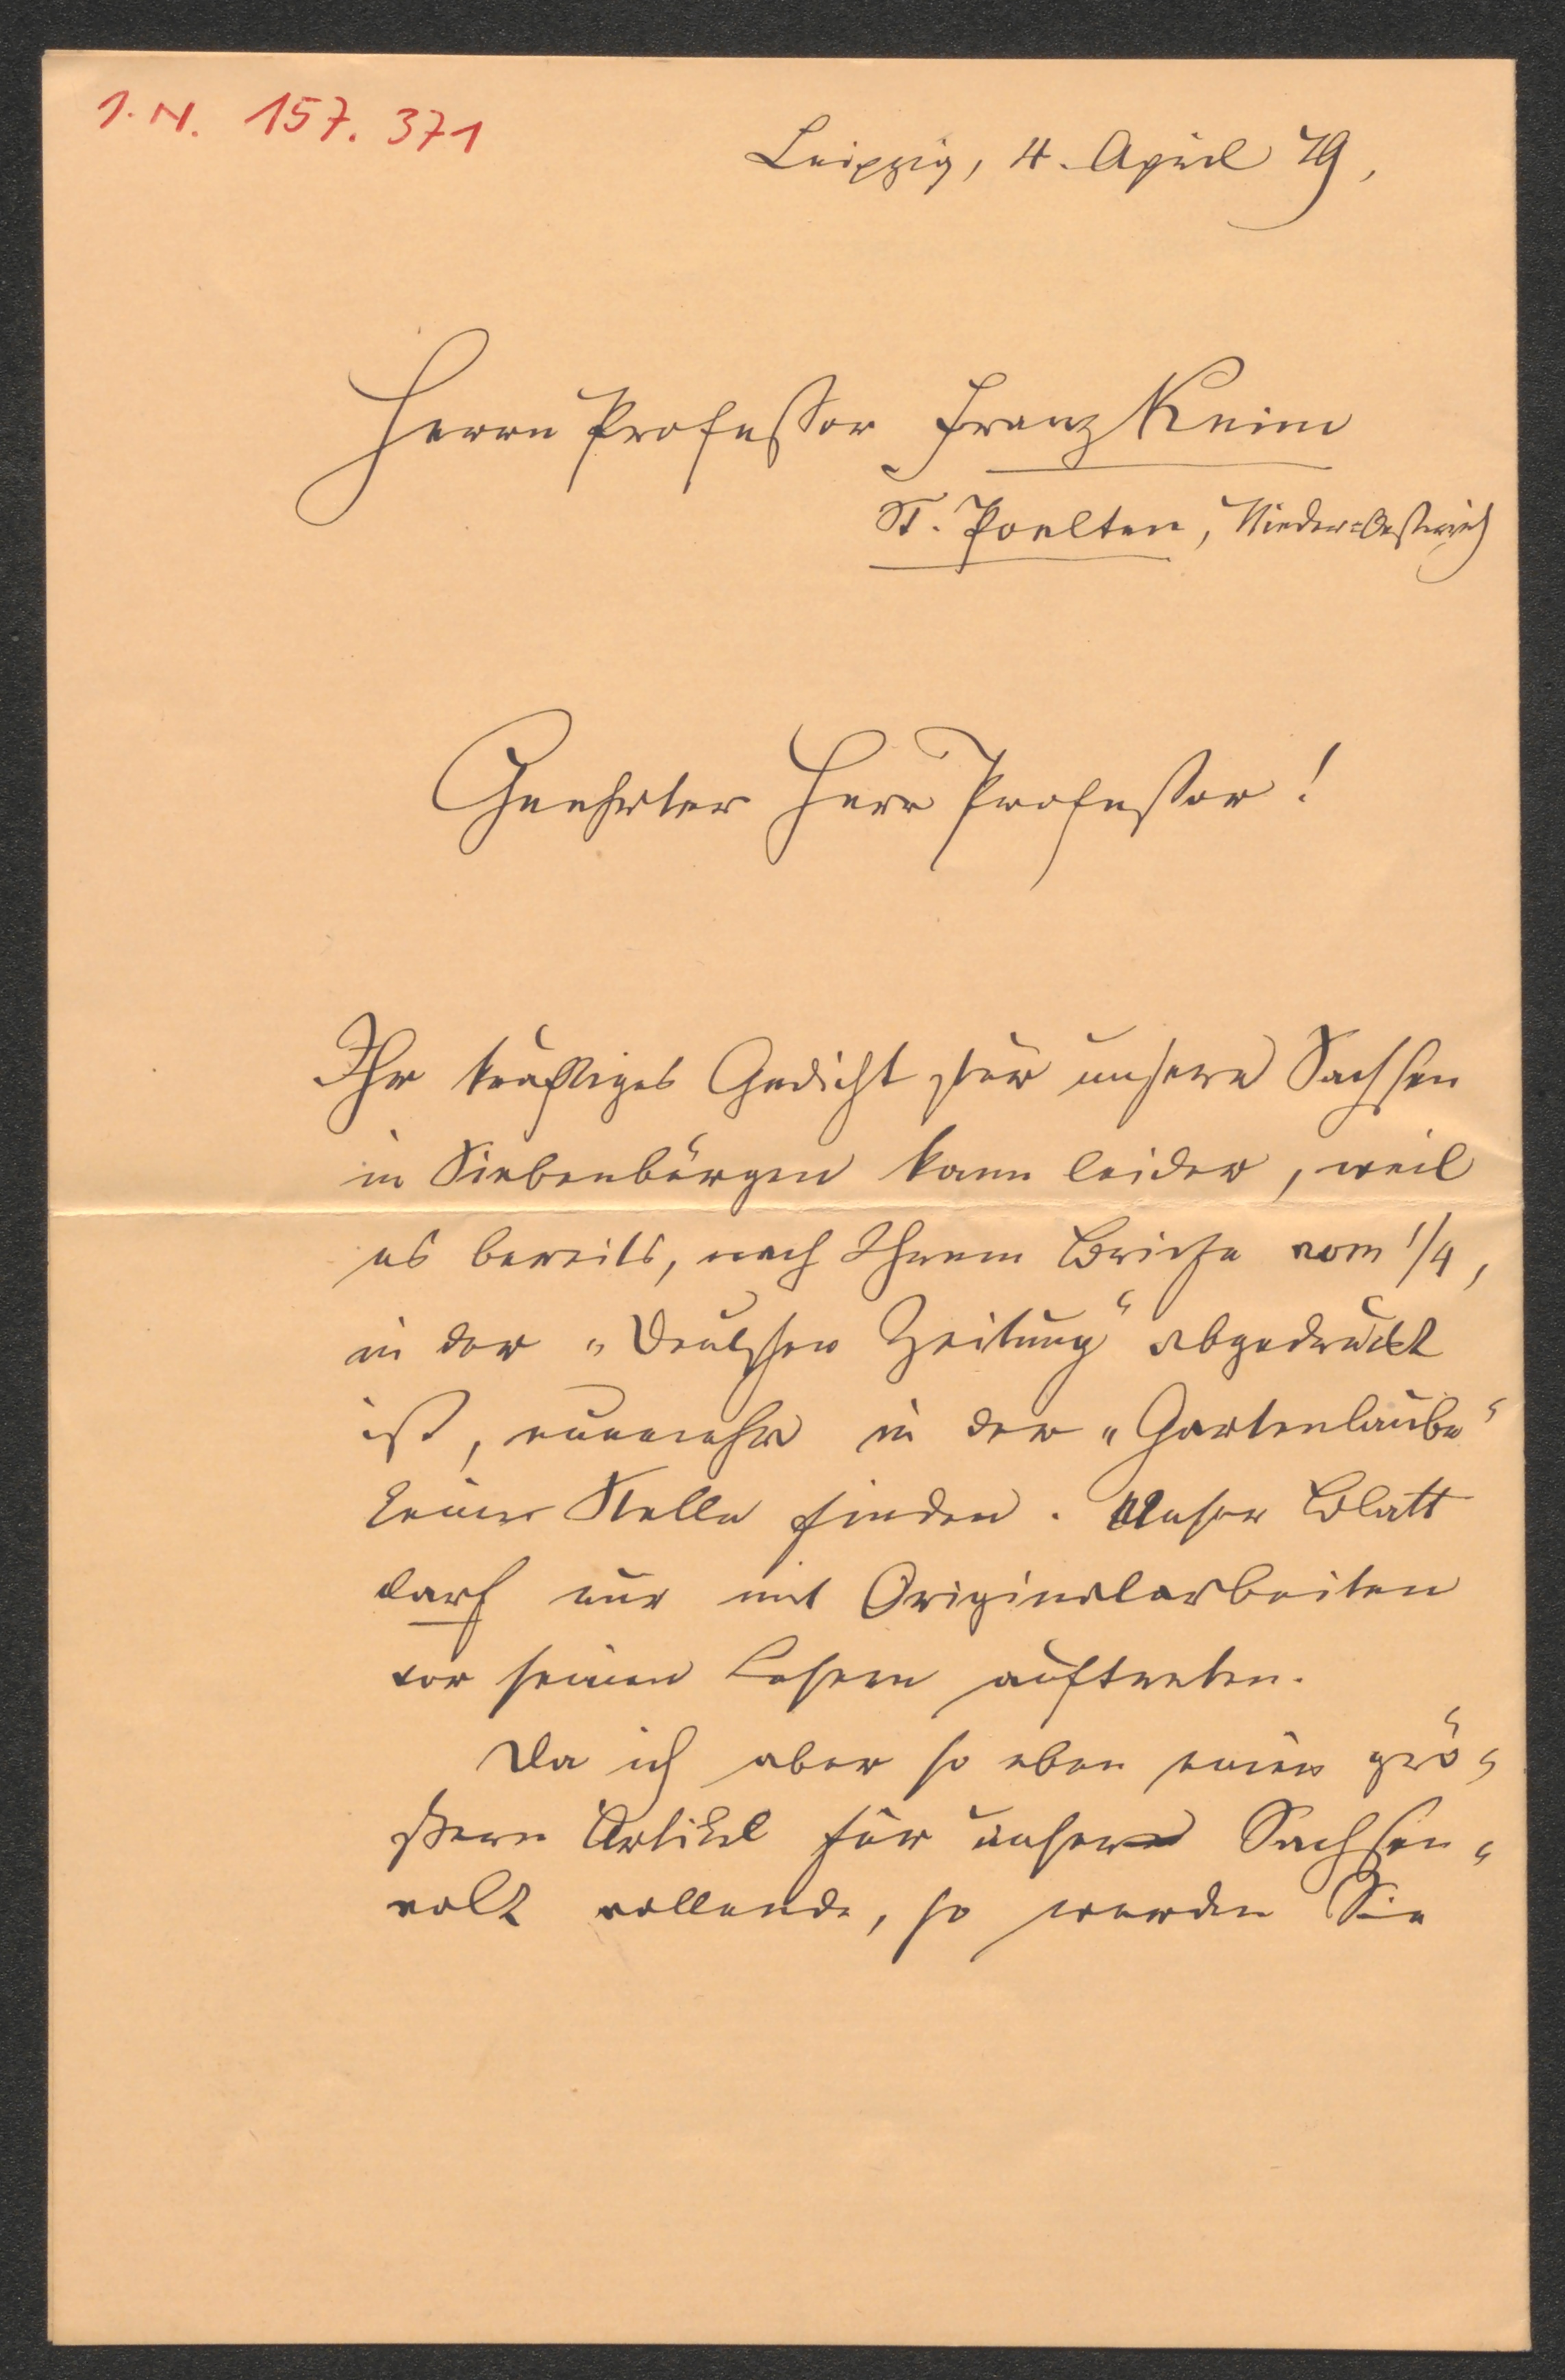 I. N. 157.371
Leipzig, 4. April 79,
Herrn Professor Franz Keim
St. Poelten, Nieder=Oestreich
Geehrter Herr Professor!
Ihr kräftiges Gedicht für unsere Sachsen
in Siebenbürgen kann leider, weil
es bereits, nach Ihrem Briefe vom 1/4,
in der „Deutschen Zeitung“ abgedruckt
ist, nunmehr in der „Gartenlaube“
keine Stelle finden. Unser Blatt
darf nur mit Originalarbeiten
vor seinen Lesern auftreten.
Da ich aber so eben einen grö-
ßern Artikel für unser Sachsen-
volk vollende, so werden Sie